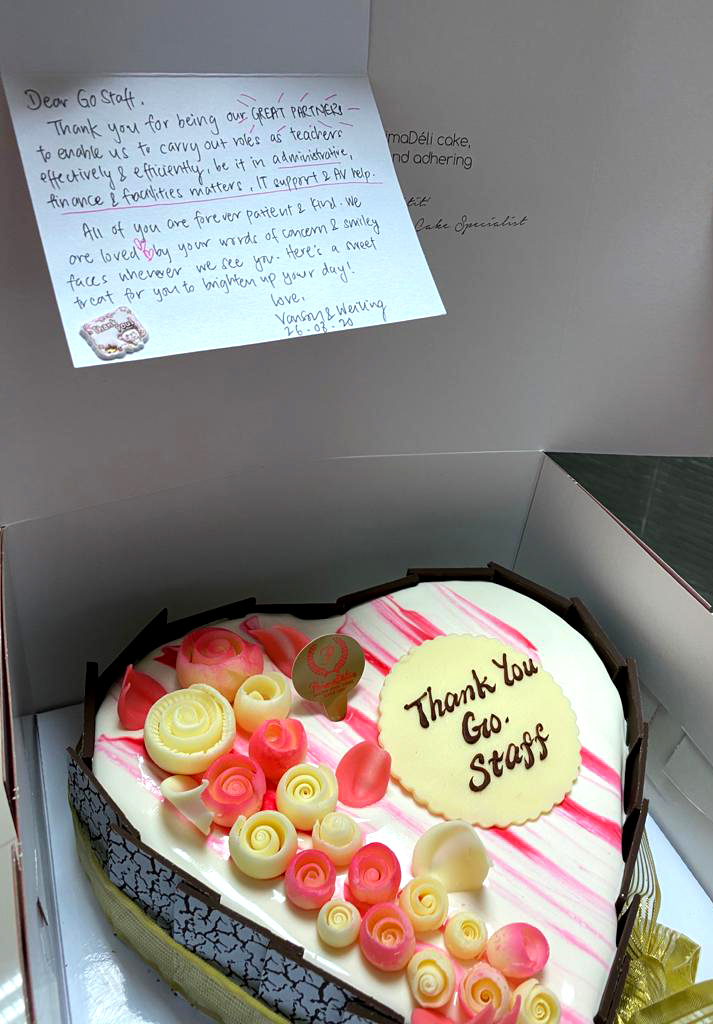 Dear Go Staff,
Thank you for being our GREAT PARTNERS
to enable us to carry out roles as teachers
effectively & efficiently, be it in administrative,
finance & facilities matters, IT support & AV help.
All of you are forever patient & kind. We
are loved by your words of concern & smiley
faces whenever we see you. Here's a sweet
treat for you to brighten up your day!
Love,
& Weiling
26-03-20
Thank You
imaDéli cake,
nd adhering
tit!
Cake Specialist
PrimaDéli
Thank You
Go.
Staff